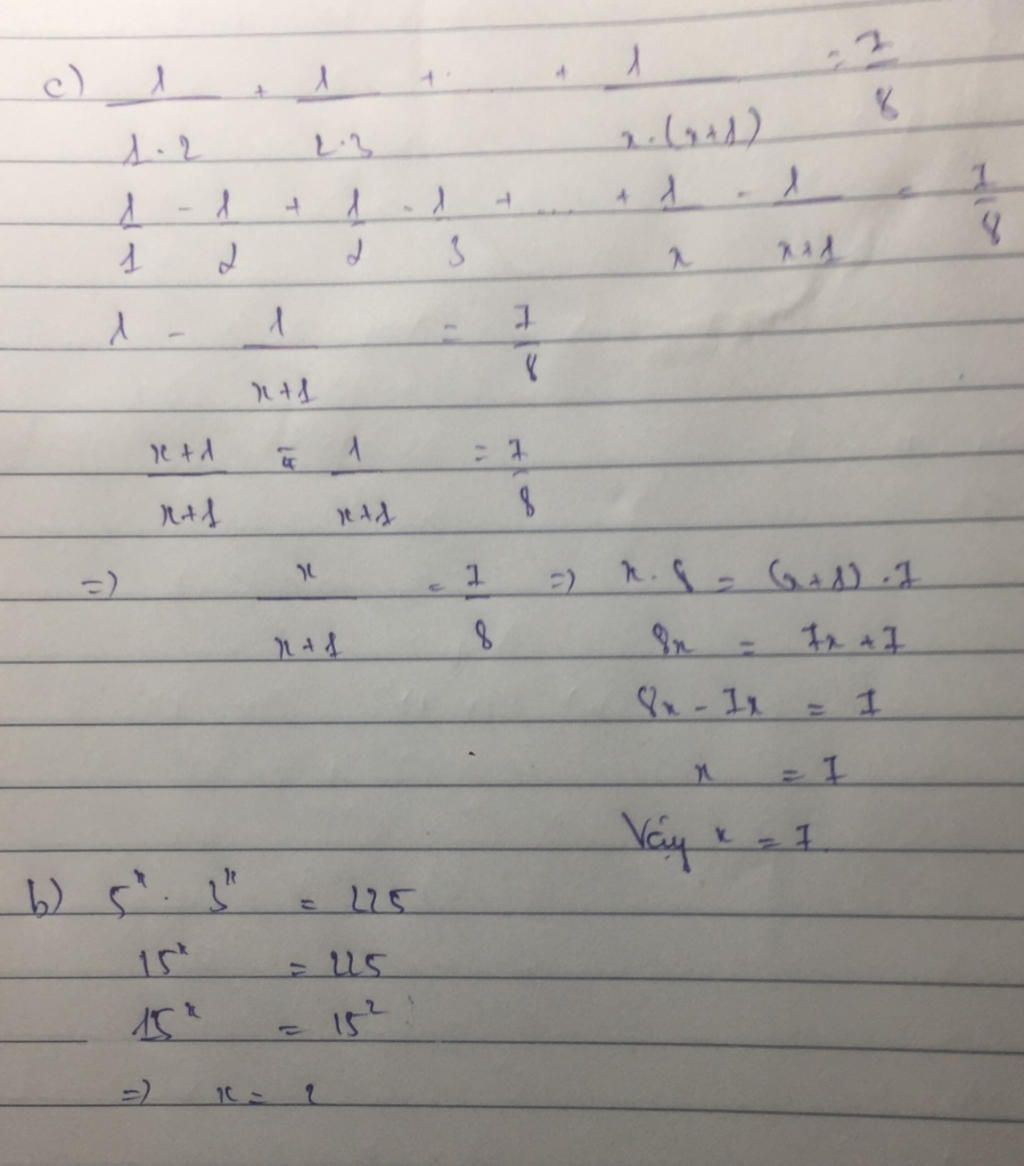 c) 1/(1·2) + 1/(2·3) + ... + 1/(x·(x+1)) = 7/8
1/1 - 1/2 + 1/2 - 1/3 + ... + 1/x - 1/(x+1) = 7/8
1 - 1/(x+1) = 7/8
(x+1)/(x+1) - 1/(x+1) = 7/8
=) x/(x+1) = 7/8 =) x·8 = (x+1)·7
8x = 7x + 7
8x - 7x = 7
x = 7
Vậy x = 7.
b) 5^x · 3^x = 225
15^x = 225
15^x = 15^2
=) x = 2